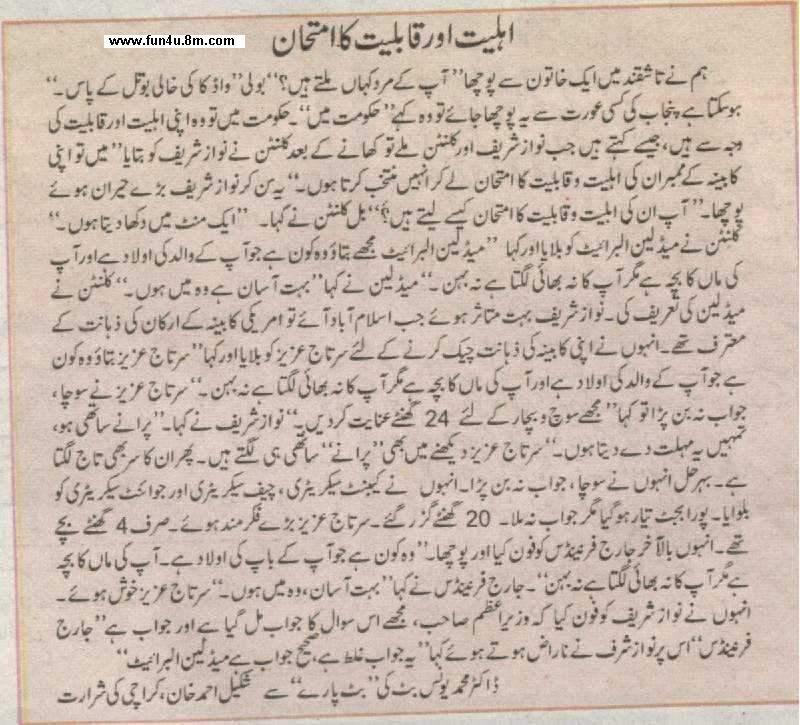 www.fun4u.8m.com
اہلیت اور قابلیت کا امتحان
ہم نے تاشقند میں ایک خاتون سے پوچھا ’’آپ کے مرد کہاں ملتے ہیں؟‘‘ بولی ’’واڈکا کی خالی بوتل کے پاس۔‘‘
ہوسکتا ہے پنجاب کی کسی عورت سے یہ پوچھا جائے تو وہ کہے ’’حکومت میں‘‘۔ حکومت میں تو وہ اپنی اہلیت اور قابلیت کی
وجہ سے ہیں، جیسے کہتے ہیں جب نواز شریف اور کلنٹن ملے تو کھانے کے بعد کلنٹن نے نواز شریف کو بتایا ’’میں تو اپنی
کابینہ کے ممبران کی اہلیت و قابلیت کا امتحان لے کر انہیں منتخب کرتا ہوں۔‘‘ یہ سن کر نواز شریف بڑے حیران ہوئے
پوچھا۔ ’’آپ ان کی اہلیت و قابلیت کا امتحان کیسے لیتے ہیں؟‘‘ بل کلنٹن نے کہا۔ ’’ایک منٹ میں دکھا دیتا ہوں۔‘‘
کلنٹن نے میڈلین البرائیٹ کو بلایا اور کہا ’’میڈلین البرائیٹ مجھے بتاؤ وہ کون ہے جو آپ کے والد کی اولاد ہے اور آپ
کی ماں کا بچہ ہے مگر آپ کا نہ بھائی لگتا ہے نہ بہن۔‘‘ میڈلین نے کہا ’’بہت آسان ہے وہ میں ہوں۔‘‘ کلنٹن نے
میڈلین کی تعریف کی۔ نواز شریف بہت متاثر ہوئے جب اسلام آباد آئے تو امریکی کابینہ کے ارکان کی ذہانت کے
معترف تھے۔ انہوں نے اپنی کابینہ کی ذہانت چیک کرنے کے لئے سرتاج عزیز کو بلایا اور کہا ’’سرتاج عزیز بتاؤ وہ کون
ہے جو آپ کے والد کی اولاد ہے اور آپ کی ماں کا بچہ ہے مگر آپ کا نہ بھائی لگتا ہے نہ بہن۔‘‘ سرتاج عزیز نے سوچا،
جواب نہ بن پڑا تو کہا ’’مجھے سوچ و بچار کے لئے 24 گھنٹے عنایت کردیں۔‘‘ نواز شریف نے کہا۔ ’’پرانے ساتھی ہو،
تمہیں یہ مہلت دے دیتا ہوں۔‘‘ سرتاج عزیز دیکھنے میں بھی ’’پرانے‘‘ ساتھی ہی لگتے ہیں۔ پھر ان کا سر بھی تاج لگتا
ہے۔ بہرحل انہوں نے سوچا، جواب نہ بن پڑا۔ انہوں نے کیبنٹ سیکریٹری، چیف سیکریٹری اور جوائنٹ سیکریٹری کو
بلوایا۔ پورا بجٹ تیار ہوگیا مگر جواب نہ ملا۔ 20 گھنٹے گزر گئے۔ سرتاج عزیز بڑے فکرمند ہوئے۔ صرف 4 گھنٹے بچے
تھے۔ انہوں بالآخر جارج فرنینڈس کو فون کیا اور پوچھا۔ ’’وہ کون ہے جو آپ کے باپ کی اولاد ہے۔ آپ کی ماں کا بچہ
ہے مگر آپ کا نہ بھائی لگتا ہے نہ بہن‘‘۔ جارج فرنینڈس نے کہا ’’بہت آسان، وہ میں ہوں۔‘‘ سرتاج عزیز خوش ہوئے۔
انہوں نے نواز شریف کو فون کیا کہ وزیراعظم صاحب، مجھے اس سوال کا جواب مل گیا ہے اور جواب ہے ’’جارج
فرنینڈس‘‘ اس پر نواز شرف نے ناراض ہوتے ہوئے کہا ’’یہ جواب غلط ہے، صحیح جواب ہے میڈلین البرائیٹ‘‘
ڈاکٹر محمد یونس بٹ کی ’’بٹ پارے‘‘ سے شکیل احمد خان، کراچی کی شرارت